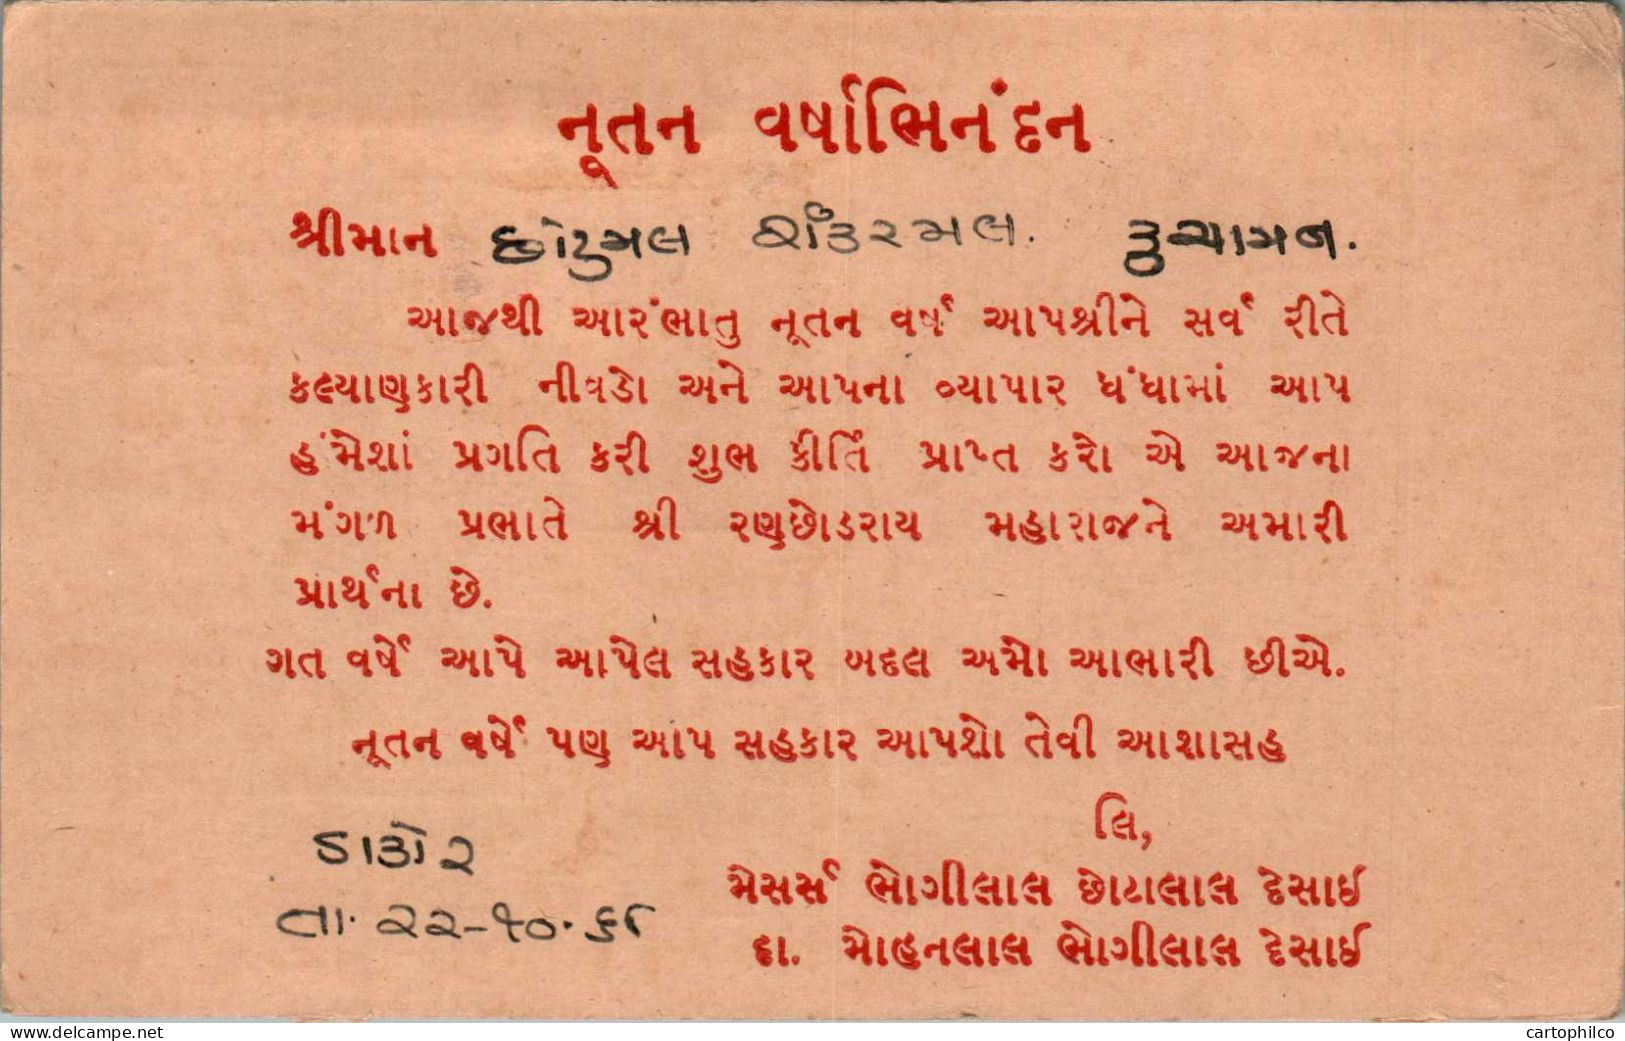 નૂતન વર્ષાભિનંદન
શ્રીમાન છોટુમલ શંકરમલ. કુચામન.
આજથી આરંભાતુ નૂતન વર્ષ આપશ્રીને સર્વ રીતે
કલ્યાણકારી નીવડો અને આપના વ્યાપાર ધંધામાં આપ
હંમેશાં પ્રગતિ કરી શુભ કીર્તિ પ્રાપ્ત કરો એ આજના
મંગળ પ્રભાતે શ્રી રણછોડરાય મહારાજને અમારી
પ્રાર્થના છે.
ગત વર્ષે આપે આપેલ સહકાર બદલ અમો આભારી છીએ.
નૂતન વર્ષે પણ આપ સહકાર આપશો તેવી આશાસહ
લિ,
મેસર્સ ભોગીલાલ છોટાલાલ દેસાઈ
દા. મોહનલાલ ભોગીલાલ દેસાઈ
ડાકોર
તા. ૨૨-૧૦-૬૮
www.delcampe.net
cartophilco